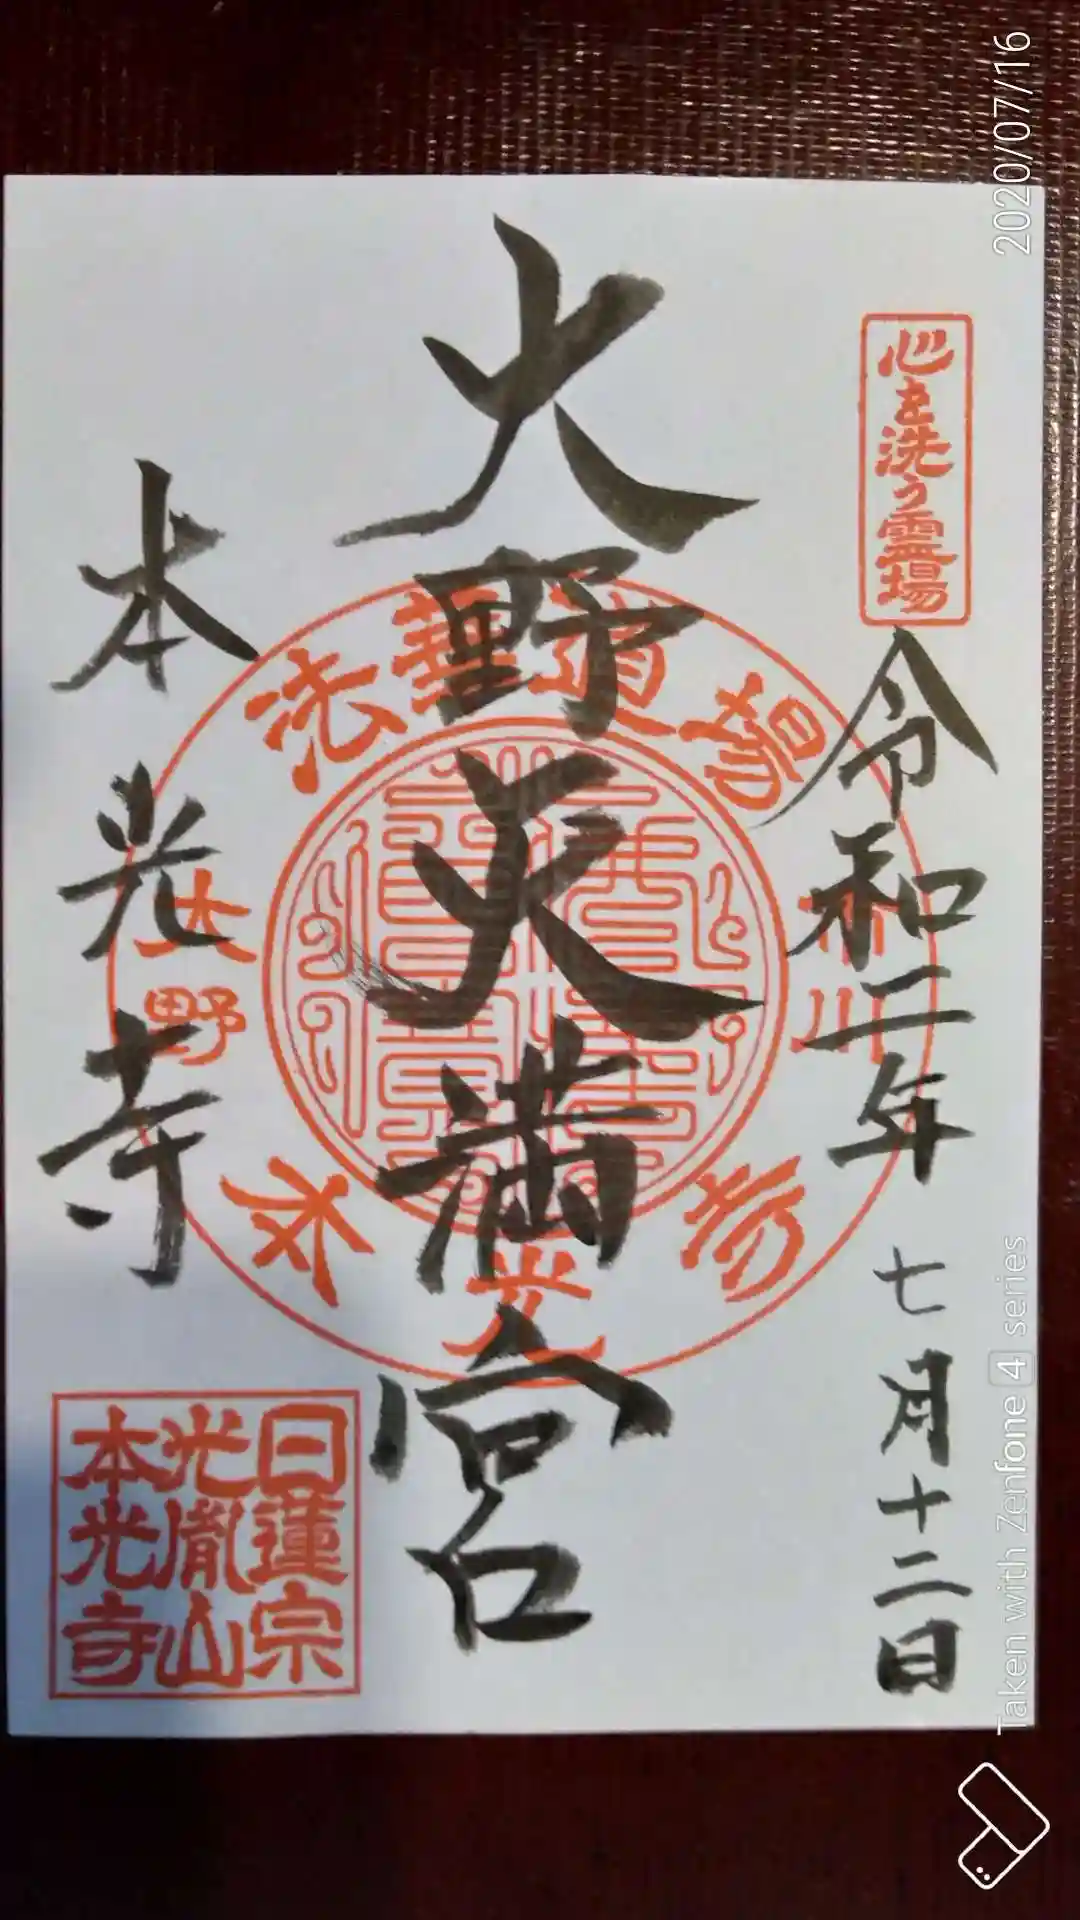 心を洗う霊場
令和二年 七月十二日
大野天満宮
法華道場
市川
大野
本光寺
本光寺
日蓮宗
光胤山
本光寺
2020/07/16
Taken with Zenfone 4 series